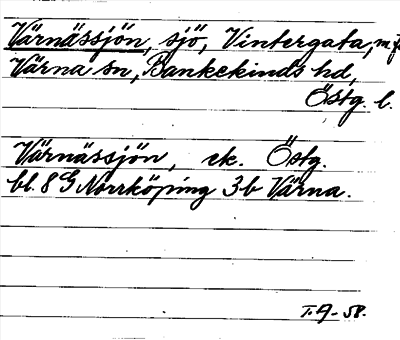 Värnässjön, sjö, Vintergata, m.fl.
Värna sn, Bankekinds hd,
Östg. l.
Värnässjön, ek. Östg.
bl. 8 G Norrköping 3b Värna.
T.A- 58.